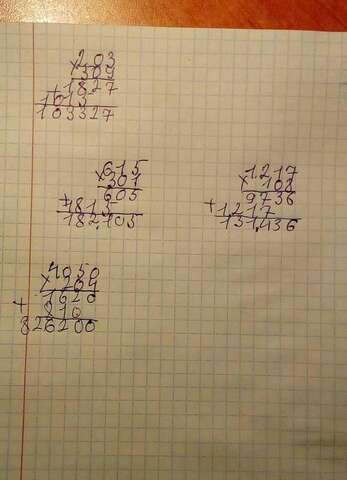 203
× 509
1827
+ 1015
103327
615
× 301
605
+ 1815
182,105
1,217
× 108
9736
+ 1217
131,436
4050
× 204
1620
+ 810
826200